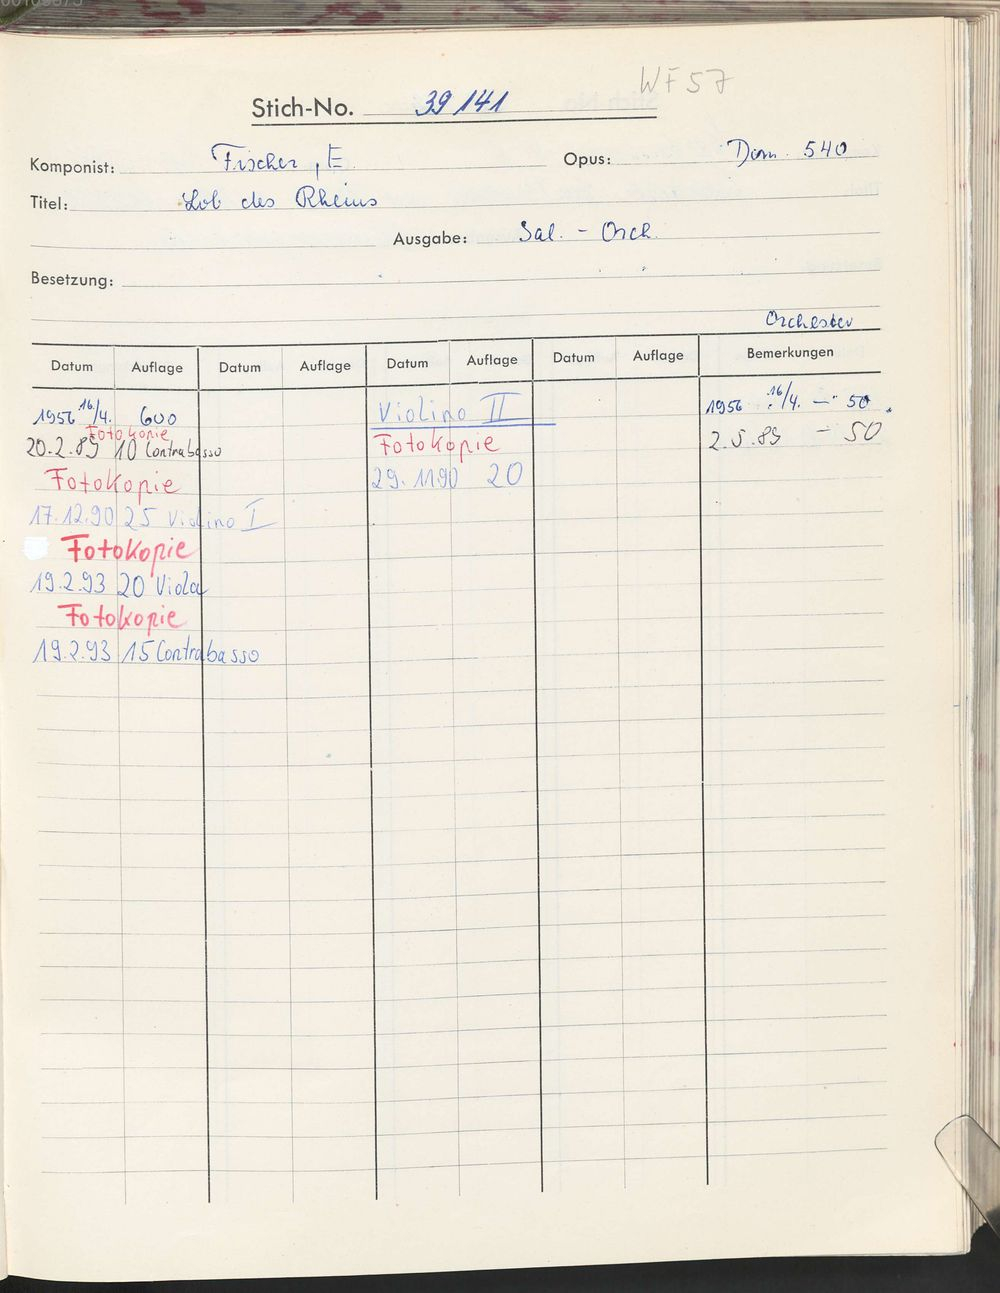 WF57
Stich-No. 39141
Komponist: Fischer, E. Opus: Dom. 540
Titel: Lob des Rheins
Ausgabe: Sal. - Orch.
Besetzung:
Orchester
Datum Auflage Datum Auflage Datum Auflage Datum Auflage Bemerkungen
1956 16/4. 600 Violino II 1956 16/4. — 50
Fotokopie
20.2.89 10 Contrabasso Fotokopie 2.5.89 - 50
Fotokopie 29.11.90 20
17.12.90 25 Violino I
Fotokopie
19.2.93 20 Viola
Fotokopie
19.2.93 15 Contrabasso